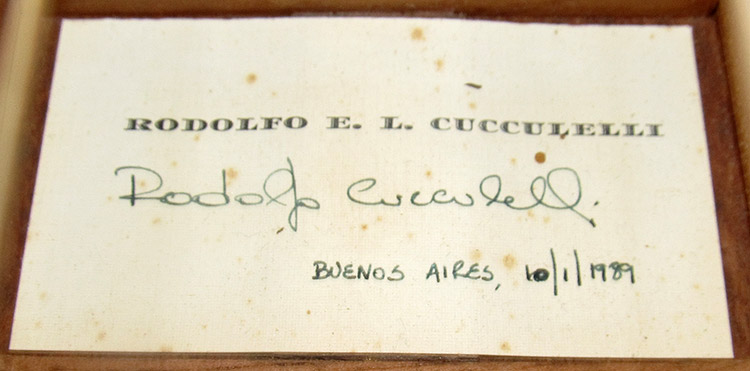 RODOLFO E. L. CUCCULELLI
Rodolfo Cucculelli
BUENOS AIRES, 10/1/1989